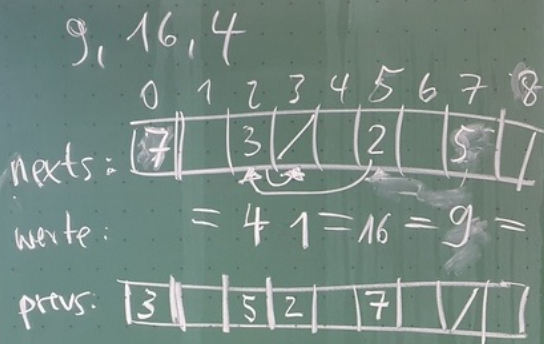 9, 16, 4
0 1 2 3 4 5 6 7 8
nexts: 7 3 / 2 5
werte: = 4 1 = 16 = 9 =
prevs: 3 5 2 7 /